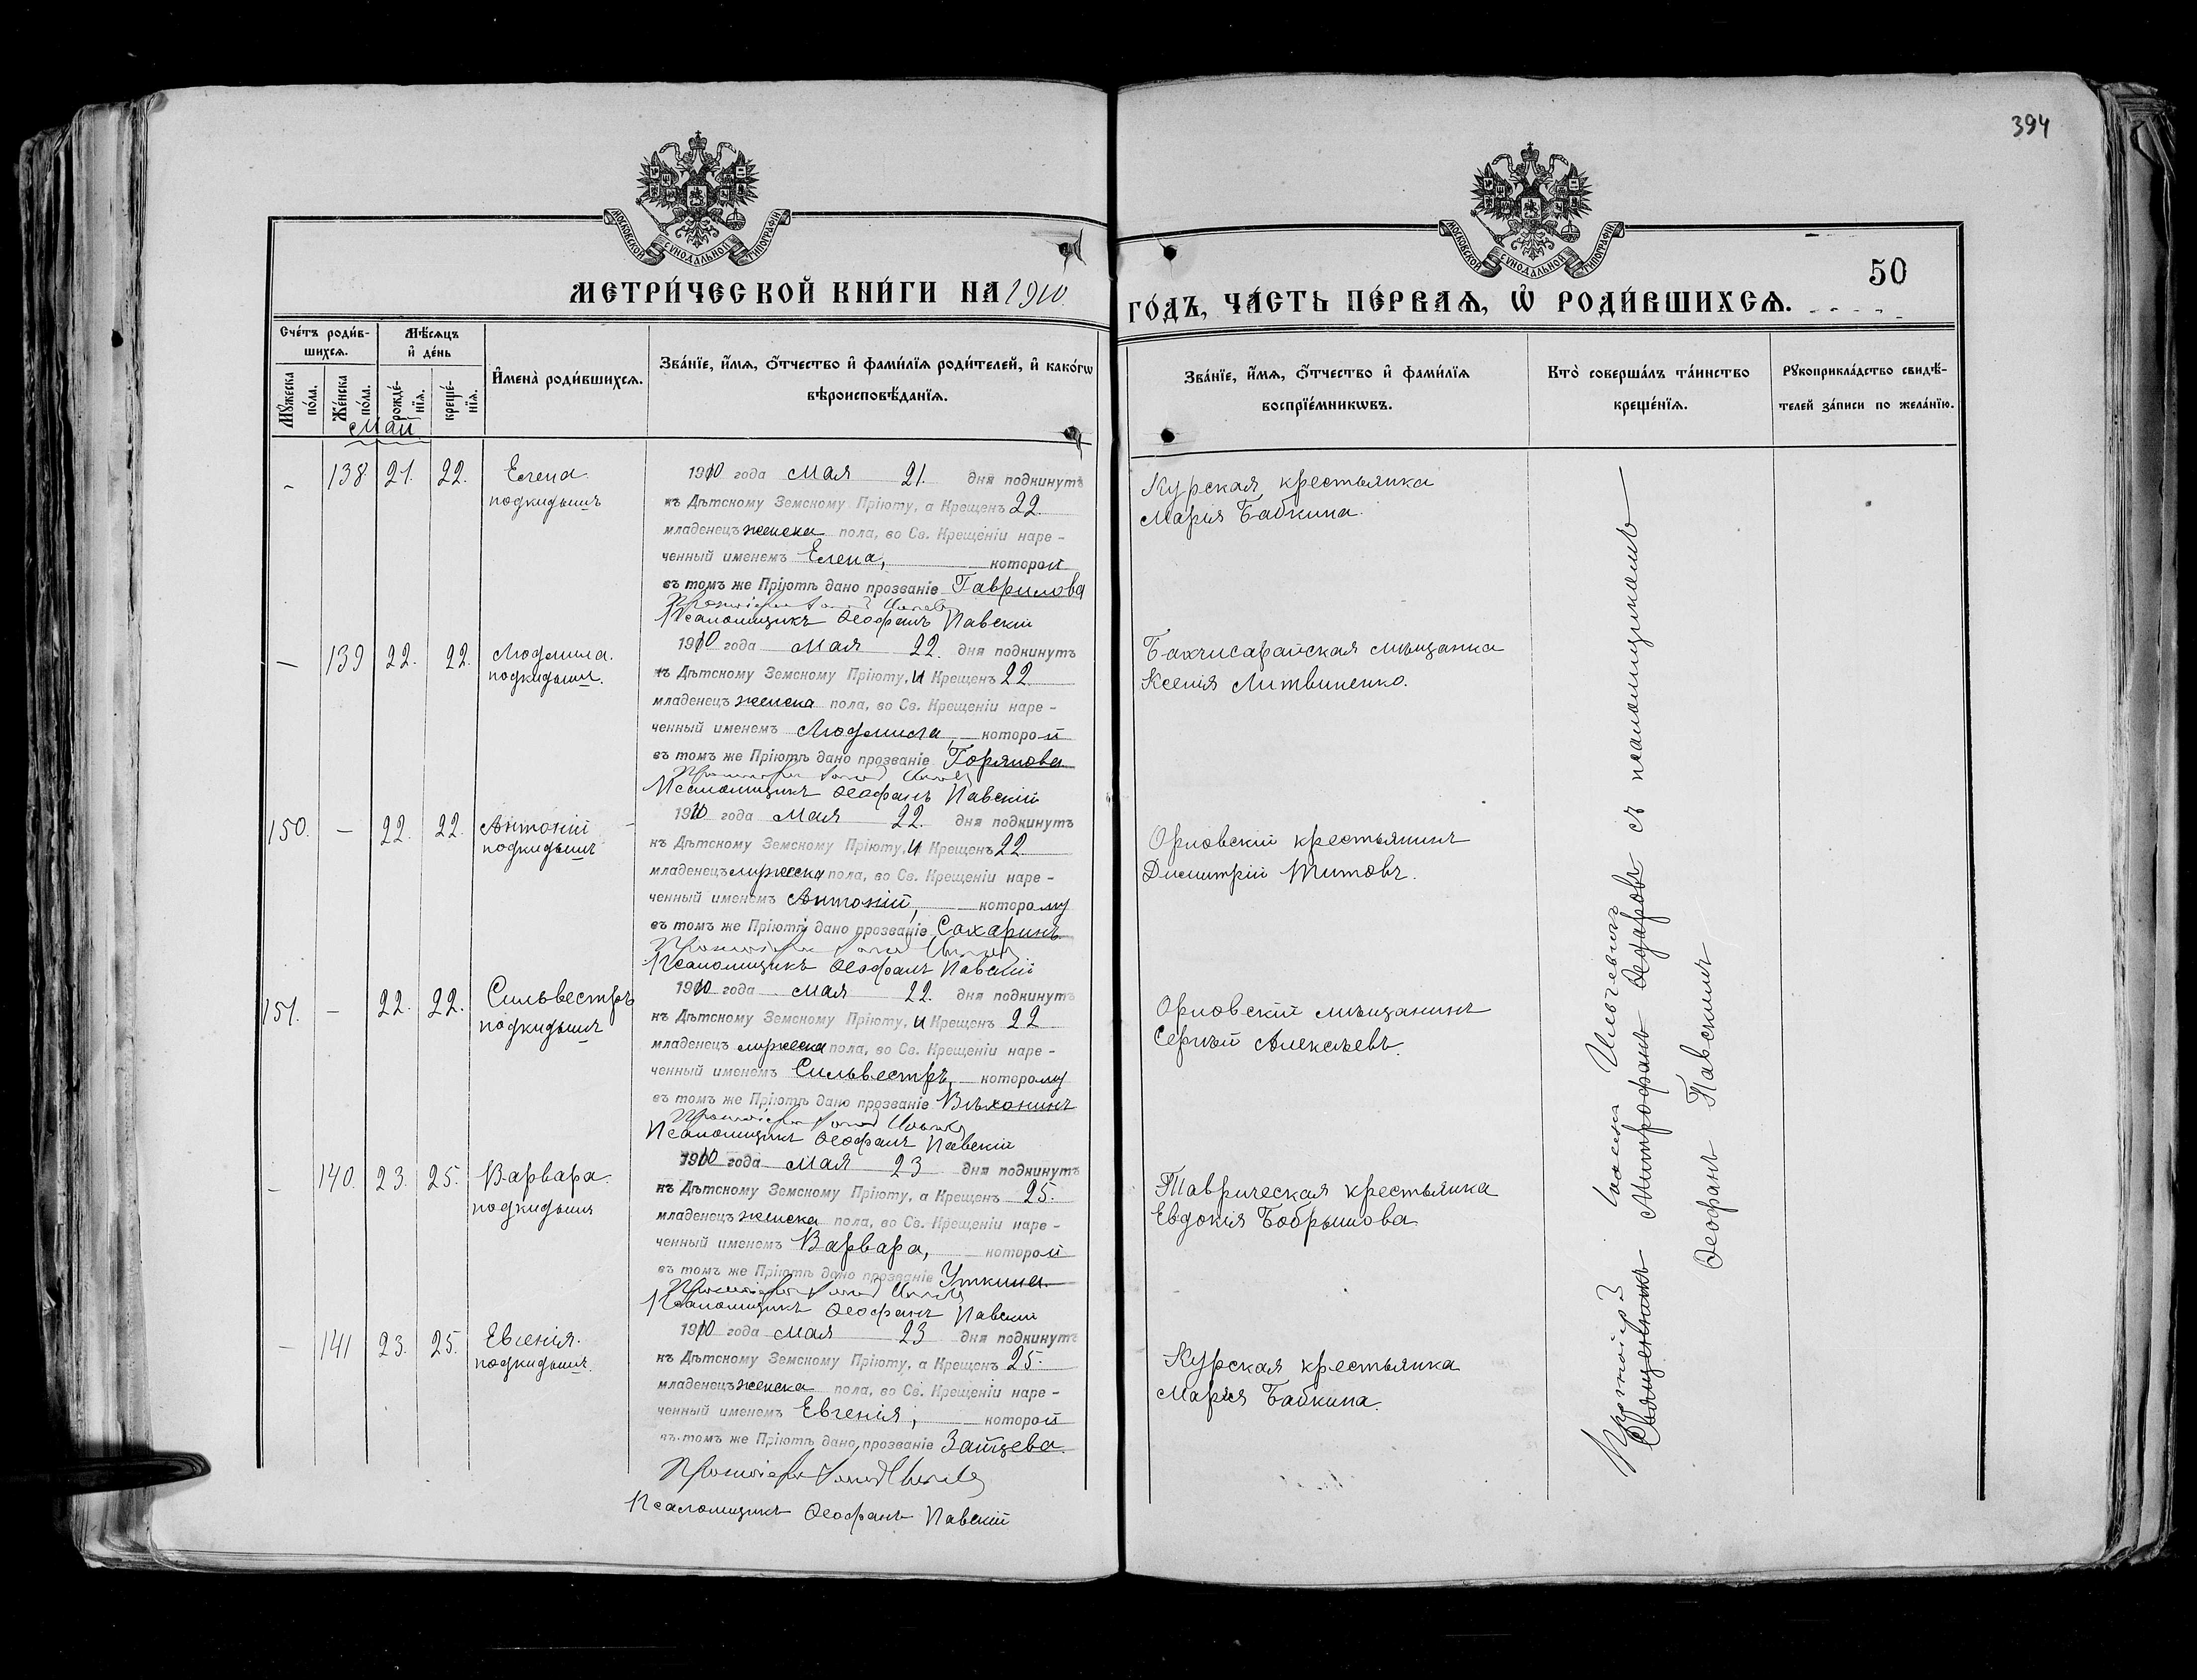 394
МОСКОВСКОЙ СѴНОДАЛЬНОЙ ТИПОГРАФІИ
МОСКОВСКОЙ СѴНОДАЛЬНОЙ ТИПОГРАФІИ
МЕТРИ́ЧЕСКОЙ КНИ́ГИ НА 1910.
ГО́ДЪ, ЧА́СТЬ ПЕ́РВАѦ, Ѡ҆ РОДИ́ВШИХСѦ.
50
Сче́тъ роди́в-
шихсѧ.
Мѣ́сѧцъ
и҆ де́нь
Мꙋ́жеска
по́ла.
Же́нска
по́ла.
рожде́-
нїѧ.
креще́-
нїѧ.
И҆мена̀ роди́вшихсѧ.
Зва́нїе, и҆́мѧ, ѻ҆́тчество и҆ фами́лїѧ роди́телей, и҆ како́гѡ
вѣроисповѣ́данїѧ.
Зва́нїе, и҆́мѧ, ѻ҆́тчество и҆ фами́лїѧ
воспрїе́мникѡвъ.
Кто̀ соверша́лъ та́инство
креще́нїѧ.
Рꙋкоприкла́дство свидѣ́-
телей за́писи по жела́нїю.
Май
– 138 21. 22. Елена
подкидышъ
1910 года Мая 21. дня подкинутъ
къ Дѣтскому Земскому Пріюту, а Крещенъ 22.
младенецъ женска пола, во Св. Крещеніи наре-
ченный именемъ Елена, которой
въ томъ же Пріютѣ дано прозваніе Гаврилова
Псаломщикъ Ѳеофанъ Павскій
Курская крестьянка
Марія Бабкина.
– 139 22. 22. Людмила.
подкидышъ.
1910 года Мая 22. дня подкинутъ
къ Дѣтскому Земскому Пріюту, и Крещенъ 22
младенецъ женска пола, во Св. Крещеніи наре-
ченный именемъ Людмила которой
въ томъ же Пріютѣ дано прозваніе Горянова
Псаломщикъ Ѳеофанъ Павскій
Бахчисарайская мѣщанка
Ксенія Литвиненко.
150. – 22. 22. Антоній
подкидышъ
1910 года Мая 22. дня подкинутъ
къ Дѣтскому Земскому Пріюту, и Крещенъ 22
младенецъ мужеска пола, во Св. Крещеніи наре-
ченный именемъ Антоній, которому
въ томъ же Пріютѣ дано прозваніе Сахаринъ
Псаломщикъ Ѳеофанъ Павскій
Орловскій крестьянинъ
Димитрій Титовъ.
151. – 22. 22. Сильвестръ
подкидышъ
1910 года Мая 22. дня подкинутъ
къ Дѣтскому Земскому Пріюту, и Крещенъ 22
младенецъ мужеска пола, во Св. Крещеніи наре-
ченный именемъ Сильвестръ, которому
въ томъ же Пріютѣ дано прозваніе
Псаломщикъ Ѳеофанъ Павскій
Орловскій мѣщанинъ
Сергѣй Алексѣевъ.
– 140. 23. 25. Варвара.
подкидышъ
1910 года Мая 23 дня подкинутъ
къ Дѣтскому Земскому Пріюту, а Крещенъ 25.
младенецъ женска пола, во Св. Крещеніи наре-
ченный именемъ Варвара, которой
въ томъ же Пріютѣ дано прозваніе Уткина.
Псаломщикъ Ѳеофанъ Павскій
Таврическая крестьянка
Евдокія Бобрышова
– 141 23. 25. Евгенія.
подкидышъ.
1910 года Мая 23 дня подкинутъ
къ Дѣтскому Земскому Пріюту, а Крещенъ 25.
младенецъ женска пола, во Св. Крещеніи наре-
ченный именемъ Евгенія, которой
въ томъ же Пріютѣ дано прозваніе Зайцева.
Псаломщикъ Ѳеофанъ Павскій
Курская крестьянка
Марія Бабкина.
Протоіерей
Священникъ Митрофанъ Ѳедоровъ съ псаломщикомъ
Ѳеофанъ Павскимъ